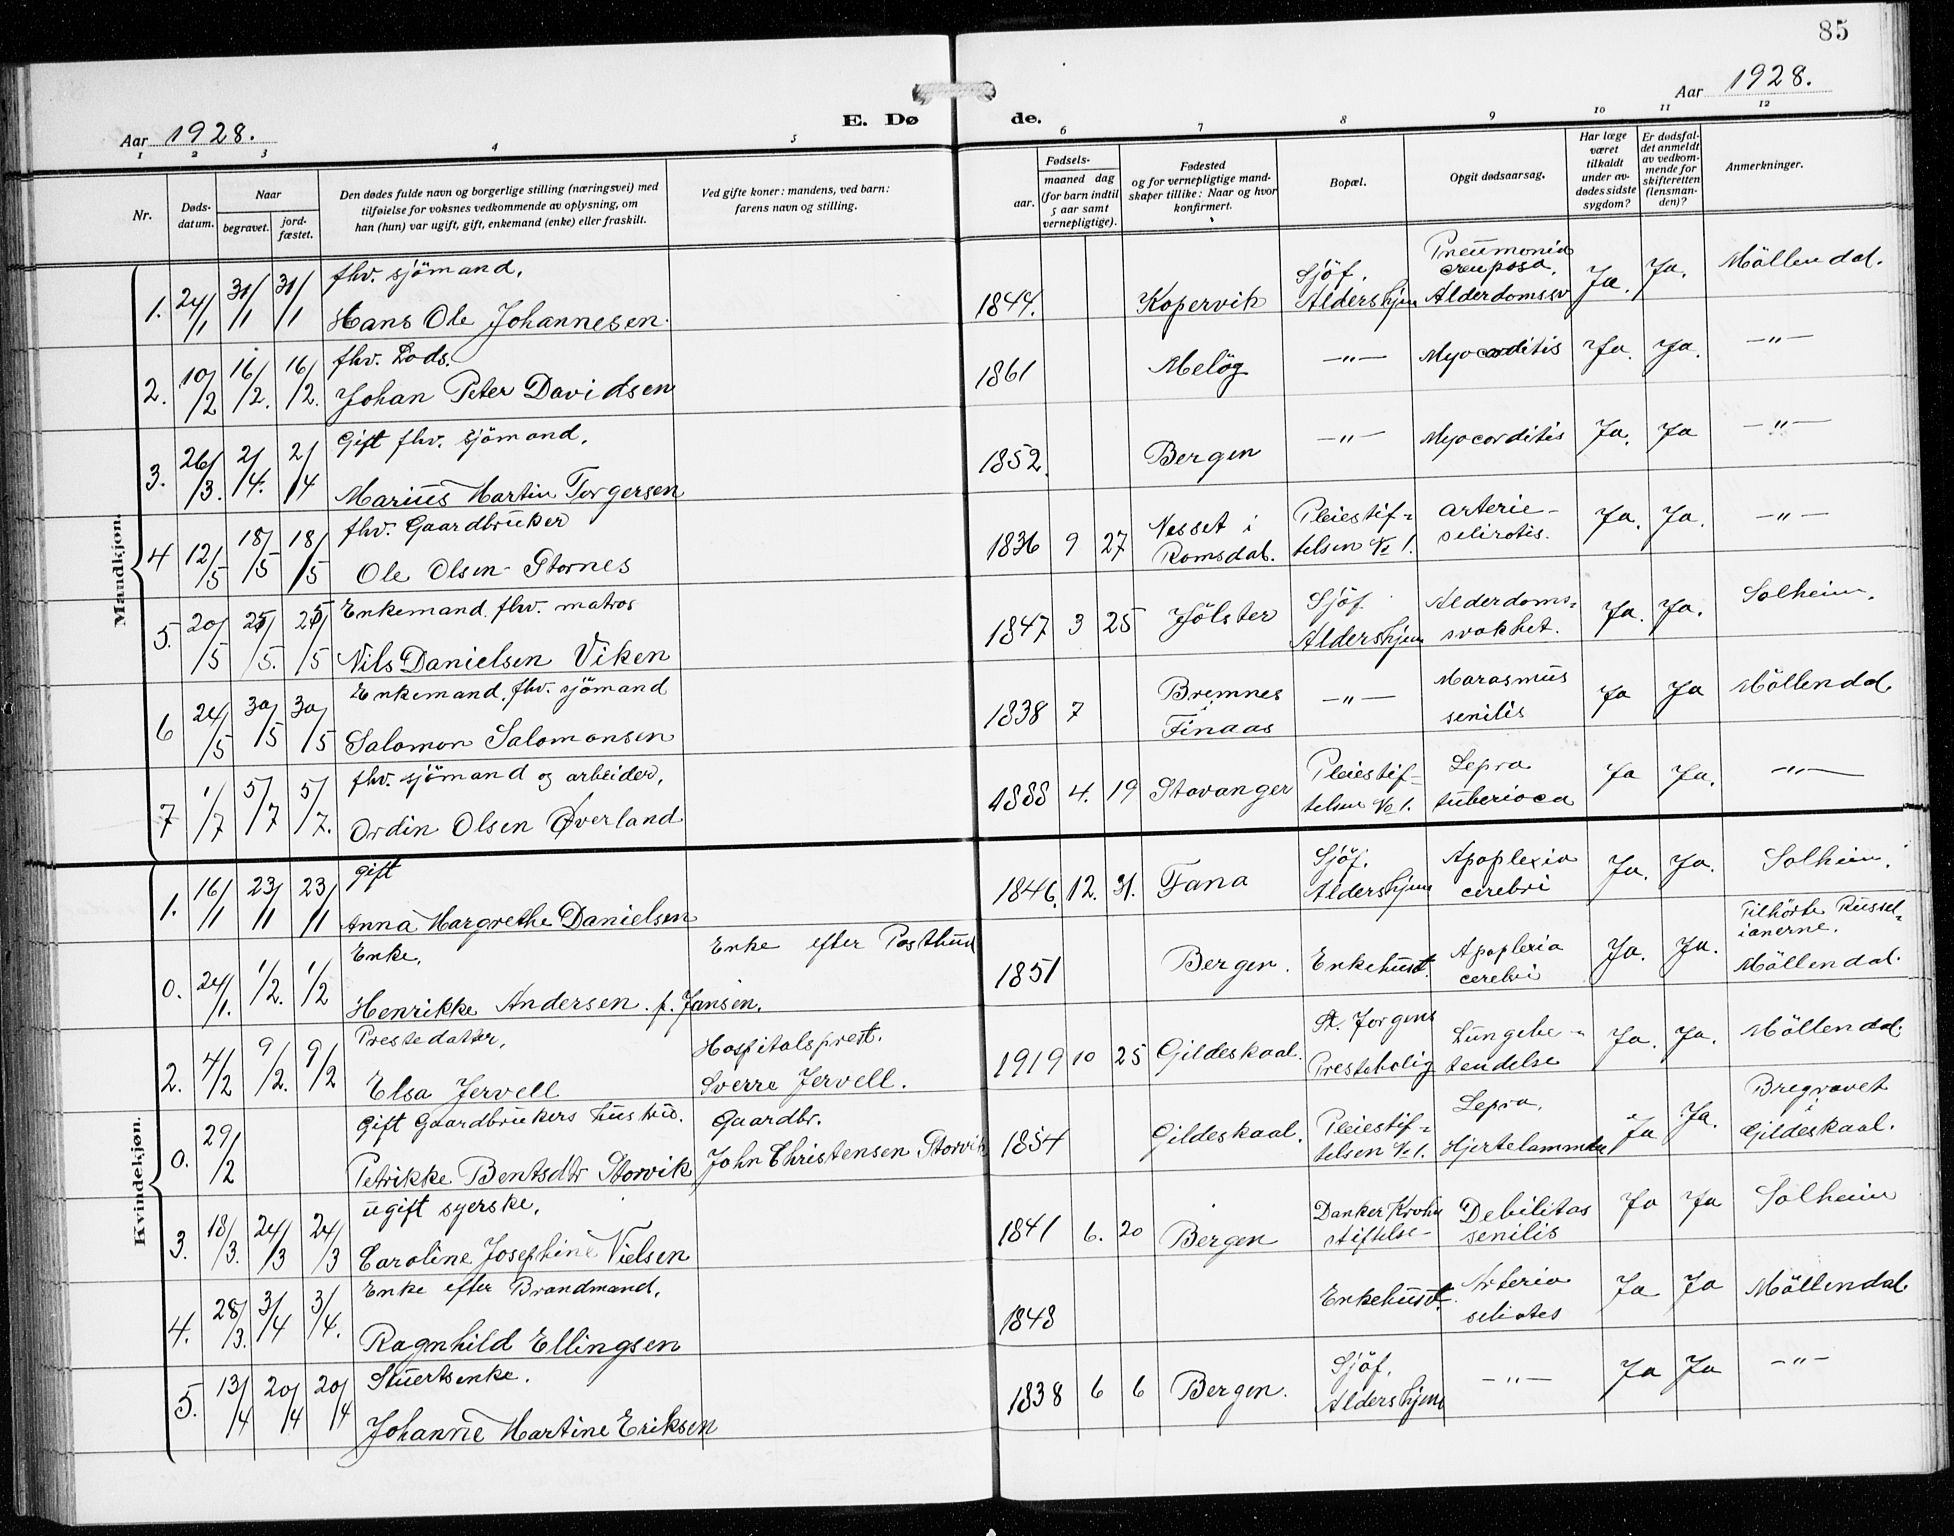 85
Aar 1928.
E. Dø
de.
Aar 1928.
1 2 3 4 5 6 7 8 9 10 11 12
Nr.
Døds-
datum.
Naar
begravet.
jord-
fæstet.
Den dødes fulde navn og borgerlige stilling (næringsvei) med
tilføielse for voksnes vedkommende av oplysning, om
han (hun) var ugift, gift, enkemand (enke) eller fraskilt.
Ved gifte koner: mandens, ved barn:
farens navn og stilling.
Fødsels-
aar.
maaned dag
(for barn indtil
5 aar samt
vernepligtige).
Fødested
og for vernepligtige mand-
skaper tillike: Naar og hvor
konfirmert.
Bopæl.
Opgit dødsaarsag.
Har læge
været
tilkaldt
under av-
dødes sidste
sygdom?
Er dødsfal-
det anmeldt
av vedkom-
mende for
skifteretten
(lensman-
den)?
Anmerkninger.
Mandkjøn.
1. 24/1 31/1 31/1
fhv. sjömand,
Hans Ole Johannesen.
1844. Kopervik
Sjöf.
Aldershjem
Pneumonia
crouposa.
Aldersdomssv
Ja. Ja. Möllendal.
2. 10/2 16/2. 16/2.
fhv. Lods.
Johan Peter Davidsen
1861 Melög —"— Myocarditis Ja. Ja. —"—
3. 26/3. 2/4. 2/4
Gift fhv. sjömand,
Marius Martin Torgersen
1852. Bergen —"— Myocarditis Ja. Ja —"—
4 12/5 18/5 18/5
fhv. Gaardbruker
Ole Olsen Stornes
1836 9 27
Nesset i
Romsdal.
Pleiestif-
telsen № 1.
Arterie-
Ja. Ja. —"—
5. 20/5 25/5. 25/5
Enkemand fhv. matros
Nils Danielsen Viken
1847 3 25 Jölster
Sjöf.
Aldershjem
Alderdoms-
svakhet.
Ja. Ja. Solheim.
6 24/5 30/5 30/5
Enkemand, fhv. sjömand
Salomon Salomonsen
1838 7
Bremnes
i
Finaas
—"—
Marasmus
senilis
Ja Ja Möllendal
7 1/7 5/7 5/7.
fhv. sjömand og arbeider,
Ordin Olsen Øverland
1888 4. 19 Stavanger
Pleiestif-
telsen № 1.
Lepra
Ja Ja. —"—
Kvindekjøn.
1. 16/1 23/1 23/1
gift
Anna Margrethe Danielsen
1846. 12. 31. Fana
Sjöf.
Aldershjem
Apoplexia
cerebri
Ja. Ja. Solheim.
0. 24/1. 1/2. 1/2
Enke,
Henrikke Andersen f. Jansen.
Enke efter Posthud
1851 Bergen. Enkehuset
Apoplexia
cerebri
Ja. Ja.
Tilhörte Russel-
ianerne.
Möllendal.
2. 4/2 9/2. 9/2
Prestedatter,
Elsa Jervell
Hospitalsprest.
Sverre Jervell.
1919 10 25 Gildeskaal.
St. Jorgens
Prestebolig
Lungebe-
tendelse
Ja. Ja. Möllendal.
0. 29/2
Gift Gaardbrukers hustru.
Petrikke Bentsdtr Storvik
Gaardbr.
John Christensen Storvik
1854 Gildeskaal.
Pleiestif-
telsen № 1.
Lepra,
Hjertelammelse
Ja Ja.
Bregravet
i
Gildeskaal.
3. 18/3. 24/3 24/3
ugift syerske,
Caroline Josephine Nielsen
1841 6. 20 Bergen
Danker Krohn
stiftelse-
Debilitas
senilis
Ja Ja Solheim
4. 28/3. 3/4 3/4.
Enke efter Brandmand,
Ragnhild Ellingsen
1848 Enkehuset.
Arterio
Ja Ja Möllendal
5. 13/4 20/4 20/4
Stuertsenke.
Johanne Martine Eriksen
1838 6 6 Bergen.
Sjöf.
Aldershjem
—"— Ja Ja —"—